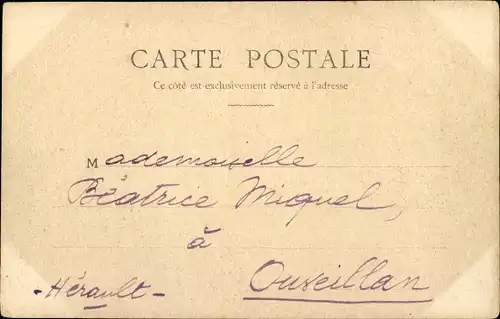 CARTE POSTALE
Ce côté est exclusivement réservé à l'adresse
Mademoiselle
Béatrice Miquel,
à
Ouveillan
- Hérault -